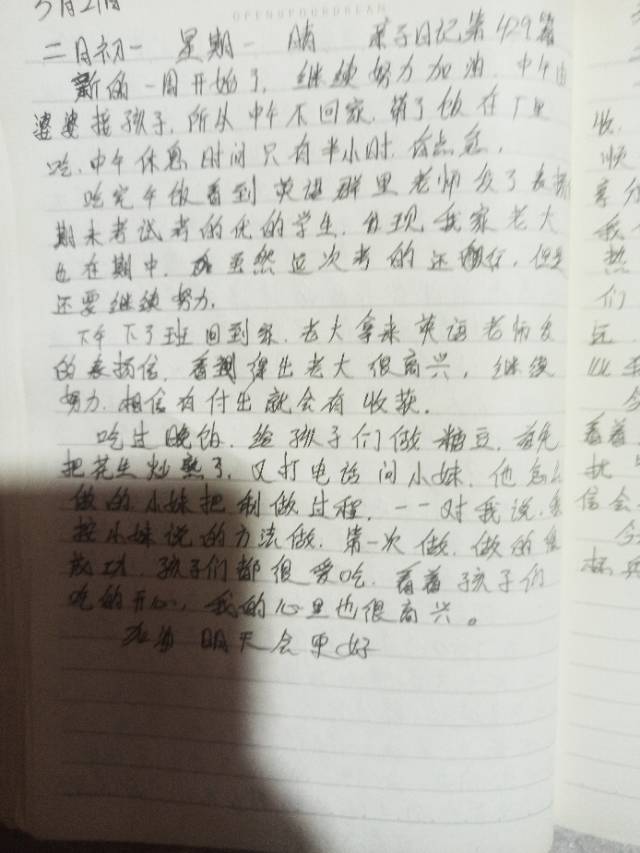 3月21日
OPENUPYOURDREAM
二月初一 星期一 晴 亲子日记第429篇
新的一周开始了，继续努力加油，中午由
婆婆接孩子，所以中午不回家，带了饭在厂里
吃，中午休息时间只有半小时，有点急，
吃完午饭看到英语群里老师发了表扬
期末考试考的优的学生，发现我家老大
也在其中，虽然这次考的还行，但是
还要继续努力。
下午下了班回到家，老大拿来英语老师发
的表扬信，看得出老大很高兴，继续
努力，相信有付出就会有收获。
吃过晚饭，给孩子们做糖豆，首先
把花生炒熟了，又打电话问小妹，他怎么
做的，小妹把制做过程，一一对我说，我
按小妹说的方法做，第一次做，做的很
成功，孩子们都很爱吃，看着孩子们
吃的开心，我的心里也很高兴。
加油 明天会更好
收，
顺
我
热
们
以
今
看着
扰
信会
今